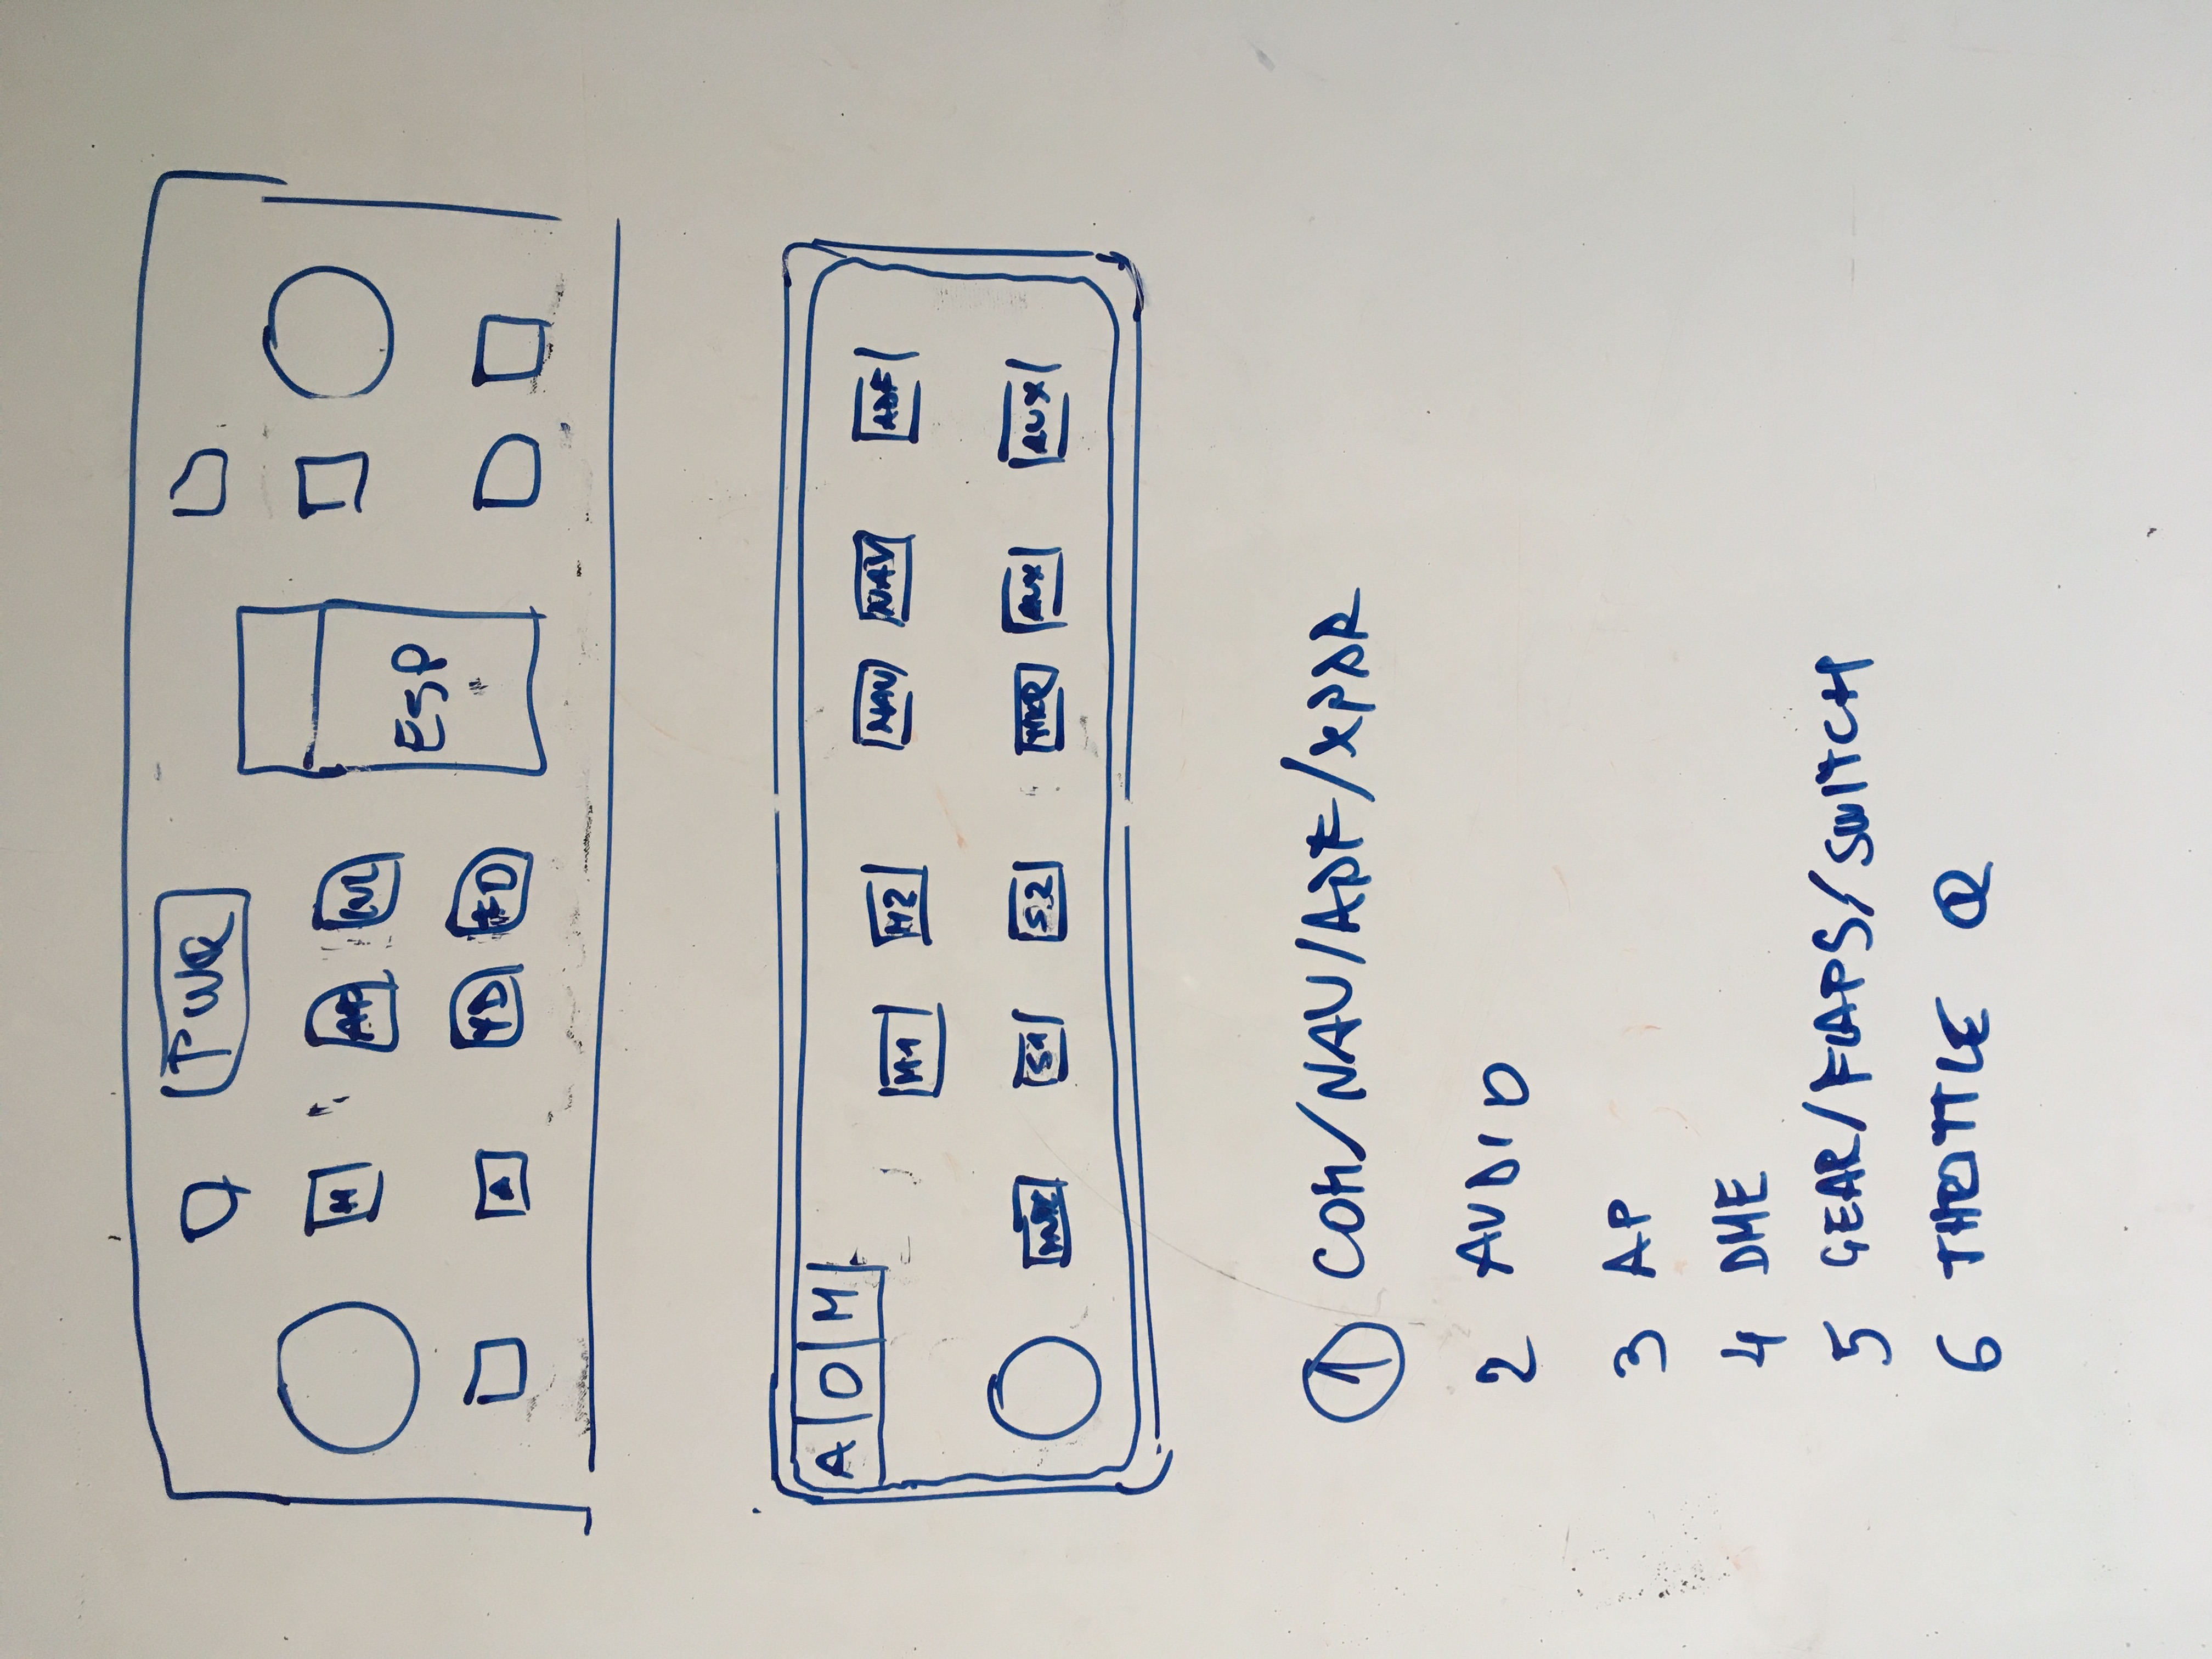 PWR
H AP LVL
ESP
A YD FD
A O M
M1 M2 NAV NAV ADF
S1 S2 MKR AUX AUX
1 COM/NAV/ADF/XPDR
2 AUDIO
3 AP
4 DME
5 GEAR/FLAPS/SWITCH
6 THROTTLE Q